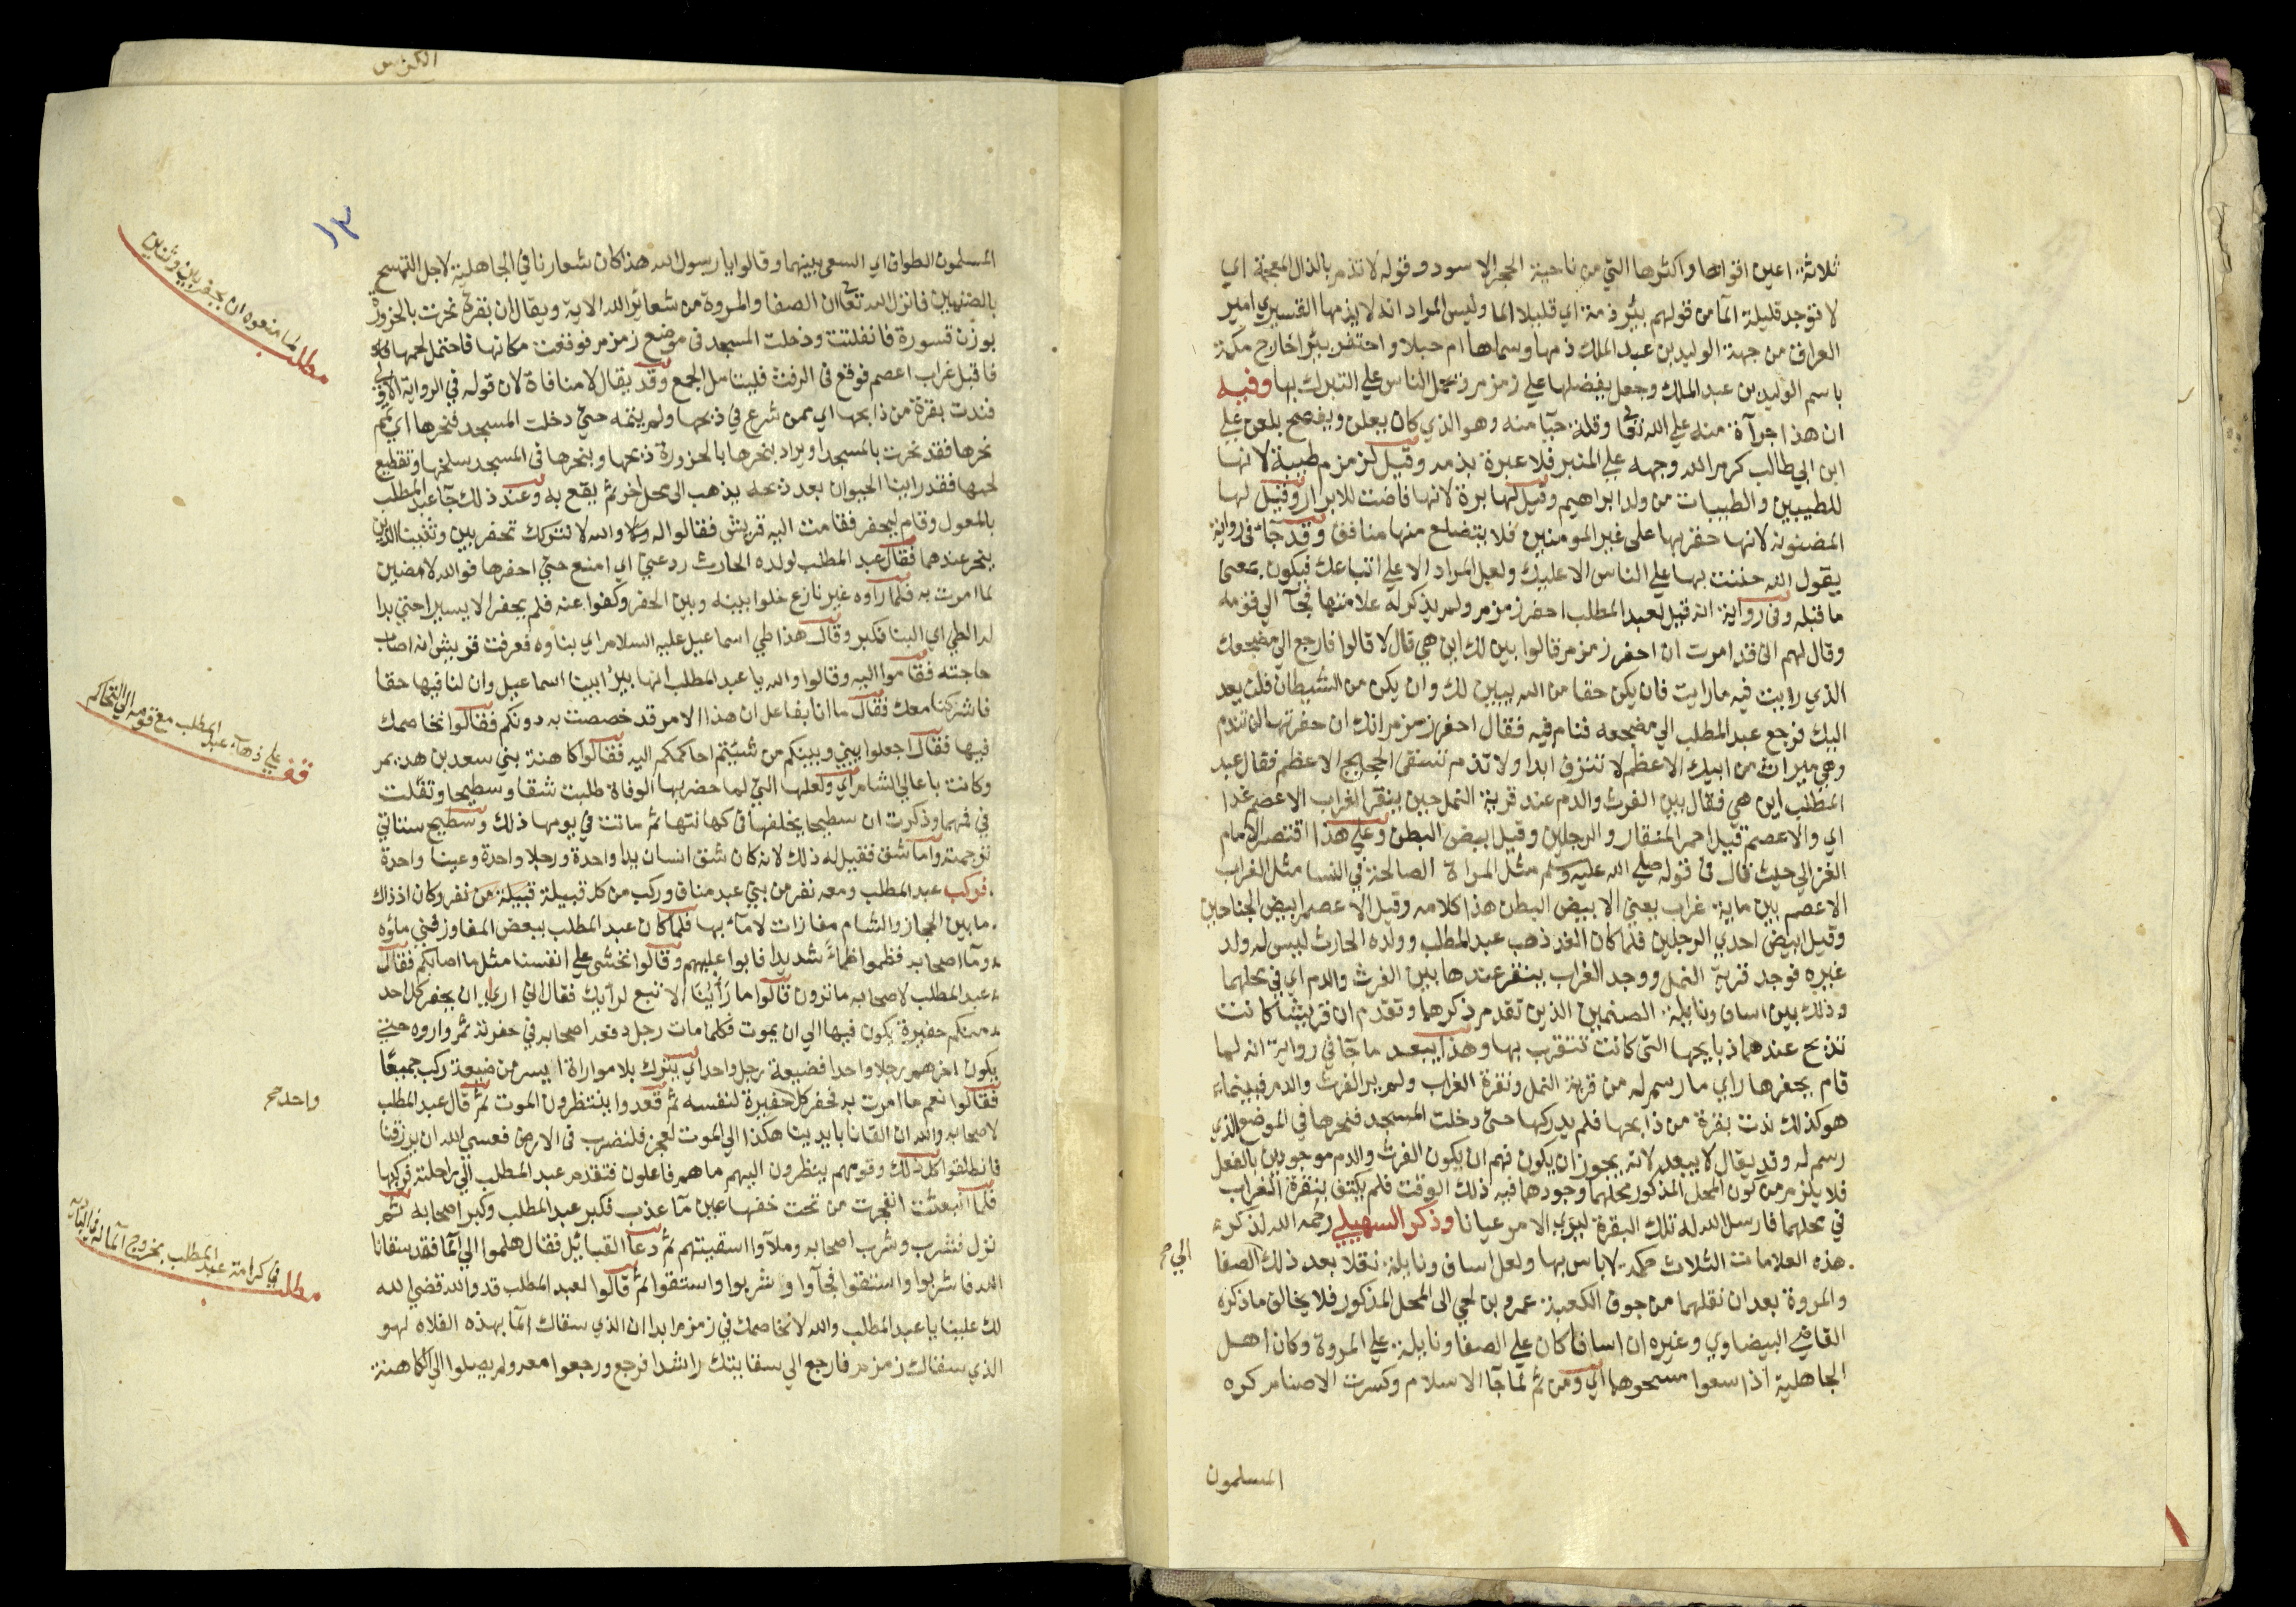 ثلاثة اعين اقواها واكثرها التي من ناحية الحجر الاسود وقوله لا تذم بالذال المعجمة اي
لا توجد قليلة المآ من قولهم بئر ذمة اي قليلا الما وليس المراد انه لا يذمها القسيري امير
العراق من جهة الوليد بن عبد الملك ذمها وسماها ام جعلا واحتفر بئرا خارج مكة
باسم الوليد بن عبد الملك وجعل يفضلها علي زمزم ويحمل الناس علي التبرك بها وفيه
ان هذا جرآة منه علي الله تعالى وقلة حيآ منه وهو الذي كان يعلن ويفصح بلعن علي
ابن ابي طالب كرم الله وجهه علي المنبر فلا عبرة بذمه وقيل لزمزم طيبة لانها
للطيبين والطيبات من ولد ابراهيم وقيل لها برة لانها فاضت للابرار وقيل لها
المضنونة لانها ضن بها على غير المومنين فلا يتضلع منها منافق وقد جآء في رواية
يقول الله ضننت بها علي الناس الا عليك ولعل المراد الا علي اتباعك فيكون بمعني
ما قبله وفي رواية انه قيل لعبد المطلب احفر زمزم ولم يذكر له علامتها فجآ الي قومه
وقال لهم اني قد امرت ان احفر زمزم قالوا بين لك اين هي قال لا قالوا فارجع الي مضجعك
الذي رايت فيه ما رايت فان يكن حقا من الله يبين لك وان يكن من الشيطان فلن يعد
اليك فرجع عبد المطلب الي مضجعه فنام فيه فقال احفر زمزم انك ان حفرتها لن تندم
وهي ميراث من ابيك الاعظم لا تنزف ابدا ولا تذم تسقي الحجيج الاعظم فقال عبد
المطلب اين هي فقال بين الفرث والدم عند قرية النمل حين ينقر الغراب الاعصم غدا
اي والاعصم قيل احمر المنقار والرجلين وقيل ابيض البطن وعلي هذا اقتصر الامام
الغزالي حيث قال في قوله صلي الله عليه وسلم مثل المراة الصالحة في النسا مثل الغراب
الاعصم بين ماية غراب يعني الابيض البطن هذا كلامه وقيل الاعصم ابيض الجناحين
وقيل ابيض احدي الرجلين فلما كان الغد ذهب عبد المطلب وولده الحارث ليس له ولد
غيره فوجد قرية النمل ووجد الغراب ينقر عندها بين الفرث والدم اي في محلهما
وذلك بين اساف ونايلة الصنمين الذين تقدم ذكرهما وتقدم ان قريشا كانت
تذبح عندهما ذبايحها التي كانت تتقرب بها وهذا يبعد ما جآ في رواية انه لما
قام يحفرها راي ما رسم له من قرية النمل ونقرة الغراب ولم ير الفرث والدم فبينماء
هو كذلك ندت بقرة من ذابحها فلم يدركها حتى دخلت المسجد فنحرها في الموضع الذي
رسم له وقد يقال لا يبعد لانه يجوز ان يكون فهم ان يكون الفرث والدم موجودين بالفعل
فلا يلزم من كون المحل المذكور محلهما وجودهما فيه ذلك الوقت فلم يكتف بنقرة الغراب
في محلهما فارسل الله له تلك البقرة ليري الامر عيانا وذكر السهيلي رحمه الله لذكرء
هذه العلامات الثلاث حكمة لا باس بها ولعل اساف ونايلة نقلا بعد ذلك الصفا
الي صح
والمروة بعد ان نقلهما من جوف الكعبة عمرو بن لحي الى المحل المذكور فلا يخالف ما ذكره
القاضي البيضاوي وغيره ان اسافا كان علي الصفا ونايلة علي المروة وكان اهل
الجاهلية اذا سعوا مسحوهما اي ومن ثم لما جآ الاسلام وكسرت الاصنام كره
المسلمون
١٣
المسلمون الطواف اي السعي بينهما وقالوا يا رسول الله هذا كان شعارنا في الجاهلية لاجل التمسح
بالصنمين فانزل الله تعالى ان الصفا والمروة من شعائر الله الاية ويقال ان بقرة نحرت بالحزورة
بوزن قسورة فانفلتت ودخلت المسجد في موضع زمزم فوقعت مكانها فاحتمل لحمها
فاقبل غراب اعصم فوقع في الفرث فليتامل الجمع وقد يقال لا منافاة لان قوله في الرواية الاولي
فندت بقرة من ذابحها اي ممن شرع في ذبحها ولم يتمه حتي دخلت المسجد فنحرها اي تمم
نحرها فقد نحرت بالمسجد او يراد بنحرها بالحزورة ذبحها وبنحرها في المسجد سلخها وتقطيع
لحمها فقد راينا الحيوان بعد ذبحه يذهب الى محل اخر ثم يقع به وعند ذلك جآ عبد المطلب
بالمعول وقام ليحفر فقامت اليه قريش فقالوا له والله لا نتركك تحفر بين وثنينا الذين
ننحر عندهما فقال عبد المطلب لولده الحارث رد عني اي امنع حتي احفرها فوالله لامضين
لما امرت به فلما راوه غير نازع خلوا بينه وبين الحفر وكفوا عنه فلم يحفر الا يسيرا حتي بدا
له الطي اي البنا فكبر وقال هذا طي اسماعيل عليه السلام اي بناوه فعرفت قريش انه اصاب
حاجته فقاموا اليه وقالوا والله يا عبد المطلب انها بير ابينا اسماعيل وان لنا فيها حقا
فاشركنا معك فقال ما انا بفاعل ان هذا الامر قد خصصت به دونكم فقالوا نخاصمك
فيها فقال اجعلوا بيني وبينكم من شئتم احاكمكم اليه فقالوا كاهنة بني سعد بن هذيمر
وكانت باعالي الشام اي ولعلها التي لما حضر بها الوفاة طلبت شقا وسطيحا وتفلت
في فمهما وذكرت ان سطيحا يخلفها في كهانتها ثم ماتت في يومها ذلك وسطيح ستاتي
ترجمته واما شق فقيل له ذلك لانه كان شق انسان يدا واحدة ورجلا واحدة وعينا واحدة
فركب عبد المطلب ومعه نفر من بني عبد مناف وركب من كل قبيلة قبيلة من نفر وكان اذ ذاك
ما بين الحجاز والشام مفازات لا مآء بها فلما كان عبد المطلب ببعض المفاوز فني ماؤه
ومآ اصحابه فظموا ظمأً شديدا فابوا عليهم وقالوا نخشى علي انفسنا مثل ما اصابكم فقال
عبد المطلب لاصحابه ما ترون قالوا ما رَأْيُنَا الا تبع لرأيك فقال اني اري ان يحفر كل احد
منكم حفيرة يكون فيها الي ان يموت فكلما مات رجل دفعه اصحابه في حفرته ثم واروه حتي
يكون اخرهم رجلا واحدا فضيعة رجل واحد اي يترك بلا مواراة ايسر من ضيعة ركب جميعًا
فقالوا نعم ما امرت به فحفر كل حفيرة لنفسه ثم قعدوا ينتظرون الموت ثم قال عبد المطلب
واحد صح
لاصحابه والله ان القانا بايدينا هكذا الي الموت لعجز فلنضرب في الارض فعسي الله ان يرزقنا
فانطلقوا كل ذلك وقومهم ينظرون اليهم ما هم فاعلون فتقدم عبد المطلب الي راحلته فركبها
فلما انبعثت انفجرت من تحت خفها عين مآ عذب فكبر عبد المطلب وكبر اصحابه ثم
نزل فشرب وشرب اصحابه وملآوا اسقيتهم ثم دعا القبائل فقال هلموا الي المآ فقد سقانا
الله فاشربوا واستقوا فجآوا وشربوا واستقوا ثم قالوا لعبد المطلب قد والله قضي الله
لك علينا يا عبد المطلب والله لا نخاصمك في زمزم ابدا ان الذي سقاك المآ بهذه الفلاه لهو
الذي سقاك زمزم فارجع الي سقايتك راشدا فرجع ورجعوا معه ولم يصلوا الي الكاهنة
مطلب لما منعوه ان يحفر بين وثنين
قف علي ذهاب عبد المطلب مع قومه الي التحاكم
مطلب في كرامة عبد المطلب بخروج المآ له